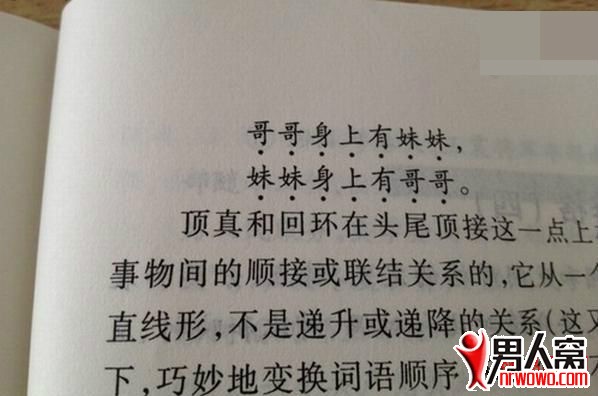 哥哥身上有妹妹，
妹妹身上有哥哥。
顶真和回环在头尾顶接这一点上
事物间的顺接或联结关系的，它从一个
直线形，不是递升或递降的关系（这又
下，巧妙地变换词语顺序
男人窝
nrwowo.com